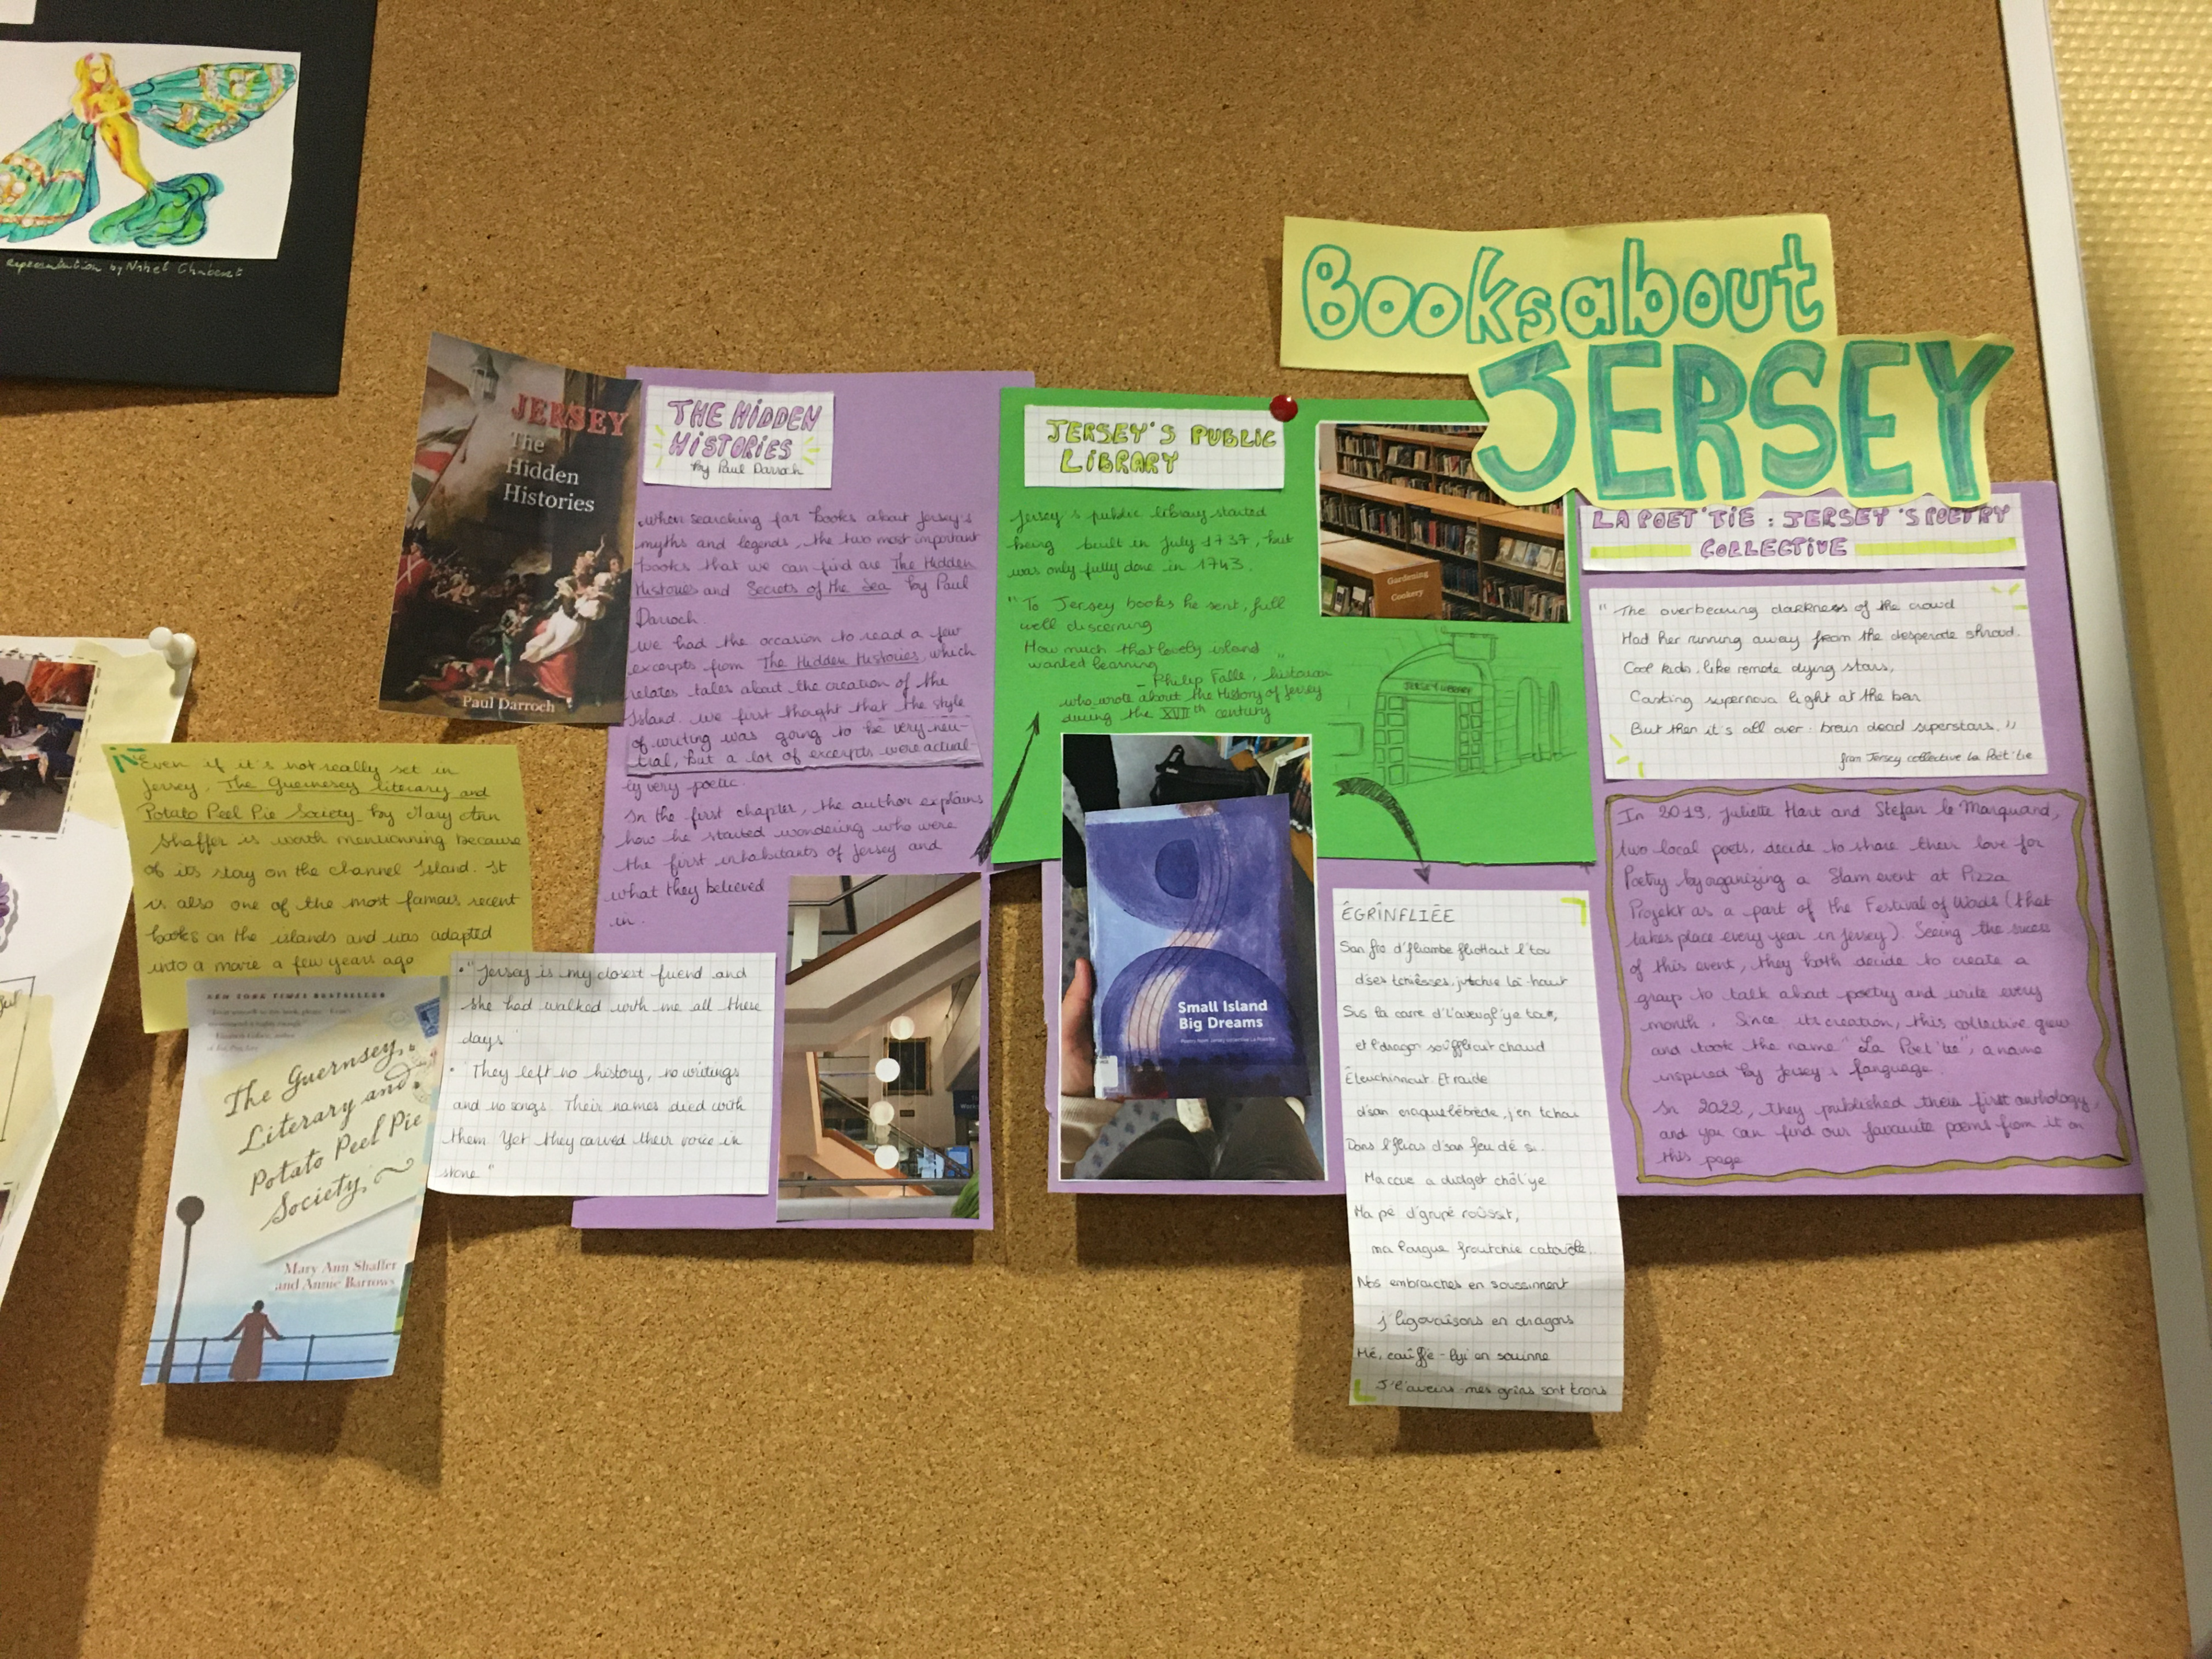 representation by
Books about
JERSEY
JERSEY
The
Hidden
Histories
Paul Darroch
THE HIDDEN
HISTORIES
by Paul Darroch
When searching for books about Jersey's
myths and legends, the two most important
books that we can find are The Hidden
Histories and Secrets of the Sea by Paul
Darroch.
We had the occasion to read a few
excerpts from The Hidden Histories, which
relates tales about the creation of the
Island. We first thought that the style
of writing was going to be very neu-
tral, but a lot of excerpts were actual
ly very poetic.
In the first chapter, the author explains
how he started wondering who were
the first inhabitants of Jersey and
what they believed
in.
Even if it's not really set in
Jersey, The Guernesey literary and
Potato Peel Pie Society by Mary Ann
Shaffer is worth mentionning because
of its stay on the channel Island. It
is also one of the most famous recent
books on the islands and was adapted
into a movie a few years ago
NEW YORK TIMES BESTSELLER
The Guernsey
Literary and
Potato Peel Pie
Society
Mary Ann Shaffer
and Annie Barrows
• "Jersey is my closest friend and
she had walked with me all these
days
• They left no history, no writings
and no songs. Their names died with
them. Yet they carved their voice in
stone"
JERSEY'S PUBLIC
LIBRARY
Jersey's public library started
being built in July 1737, but
was only fully done in 1743.
"To Jersey books he sent, full
well discerning
How much that lovely island
wanted learning"
- Philip Falle, historian
who wrote about the History of Jersey
during the XVIIth century
Gardening
Cookery
JERSEY LIBRARY
Small Island
Big Dreams
Poems from Jersey collective La Poet'tie
ÉGRÎNFLIÉE
San fro d'fliambe fliottout l'tou
d'ses tchiêsses, jutchie là-haut
Sus la carre d'l'aveugl'ye
et l'dragon souffliout chaud
Êleuchinnout. Et raide
d'san craquelébrède, j'en tchai
Dans l'flias d'san feu dé
Ma coue a
Ma pé d'grupé roûssit,
ma langue froutchie
Nos embraiches en
en dragons
Mé,
mes grîns sont
LA POET'TIE : JERSEY'S POETRY
COLLECTIVE
"The overbearing darkness of the crowd
Had her running away from the desperate shroud.
Cool kids, like remote dying stars,
Casting supernova light at the bar
But then it's all over : brain dead superstars."
from Jersey collective La Poët'tie
In 2019, Juliette Hart and Stefan le Marquand,
two local poets, decide to share their love for
Poetry by organizing a Slam event at Pizza
Projekt as a part of the Festival of Words (that
takes place every year in Jersey). Seeing the success
of this event, they both decide to create a
group to talk about poetry and write every
month. Since its creation, this collective grew
and took the name "La Poet'tie", a name
inspired by Jersey's language.
In 2022, they published their first anthology,
and you can find our favourite poems from it on
this page